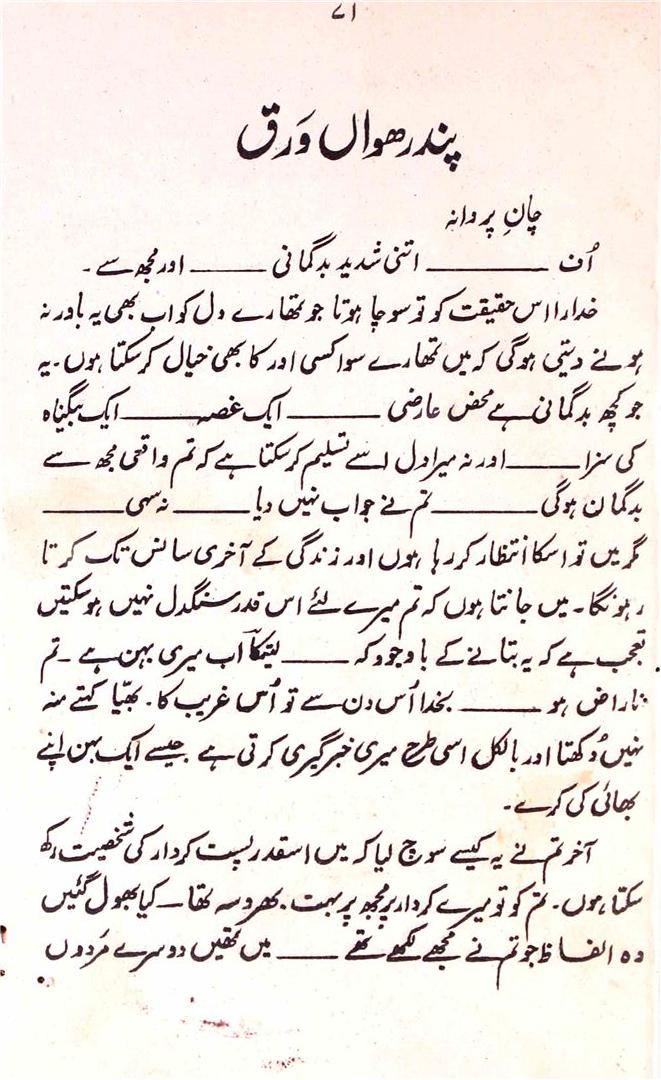 ۷۱
پندرھواں وَرق
جانِ پروانہ
اُف ـــــــ اتنی شدید بدگمانی ـــــــ اور مجھ سے ۔
خدارا اس حقیقت کو تو سوچا ہوتا جو تمھارے دل کو اب بھی یہ باور نہ
ہونے دیتی ہوگی کہ میں تمھارے سوا کسی اور کا بھی خیال کر سکتا ہوں۔ یہ
جو کچھ بدگمانی ہے محض عارضی ـــــــ ایک غصہ ـــــــ ایک بیگناہ
کی سزا ـــــــ اور نہ میرا دل اسے تسلیم کر سکتا ہے کہ تم واقعی مجھ سے
بدگمان ہوگی ـــــــ تم نے جواب نہیں دیا ـــــــ نہ سہی ـــــــ
مگر میں تو اسکا انتظار کر رہا ہوں اور زندگی کے آخری سانس تک کرتا
رہونگا۔ میں جانتا ہوں کہ تم میرے لئے اس قدر سنگدل نہیں ہو سکتیں
تعجب ہے کہ یہ بتانے کے باوجود کہ ـــــــ لتیکا اب میری بہن ہے ۔ تم
ناراض ہو ـــــــ بخدا اُس دن سے تو اُس غریب کا۔ بھیّا کہتے منہ
نہیں دُکھتا اور بالکل اسی طرح میری خبرگیری کرتی ہے جیسے ایک بہن اپنے
بھائی کی کرے۔
آخر تم نے یہ کیسے سوچ لیا کہ میں اسقدر پست کردار کی شخصیت رکھ
سکتا ہوں۔ تم کو تو میرے کردار پر مجھ پر بہت بھروسہ تھا۔ کیا بھول گئیں
وہ الفاظ جو تم نے مجھے لکھے تھے ـــــــ میں تمھیں دوسرے مَردوں